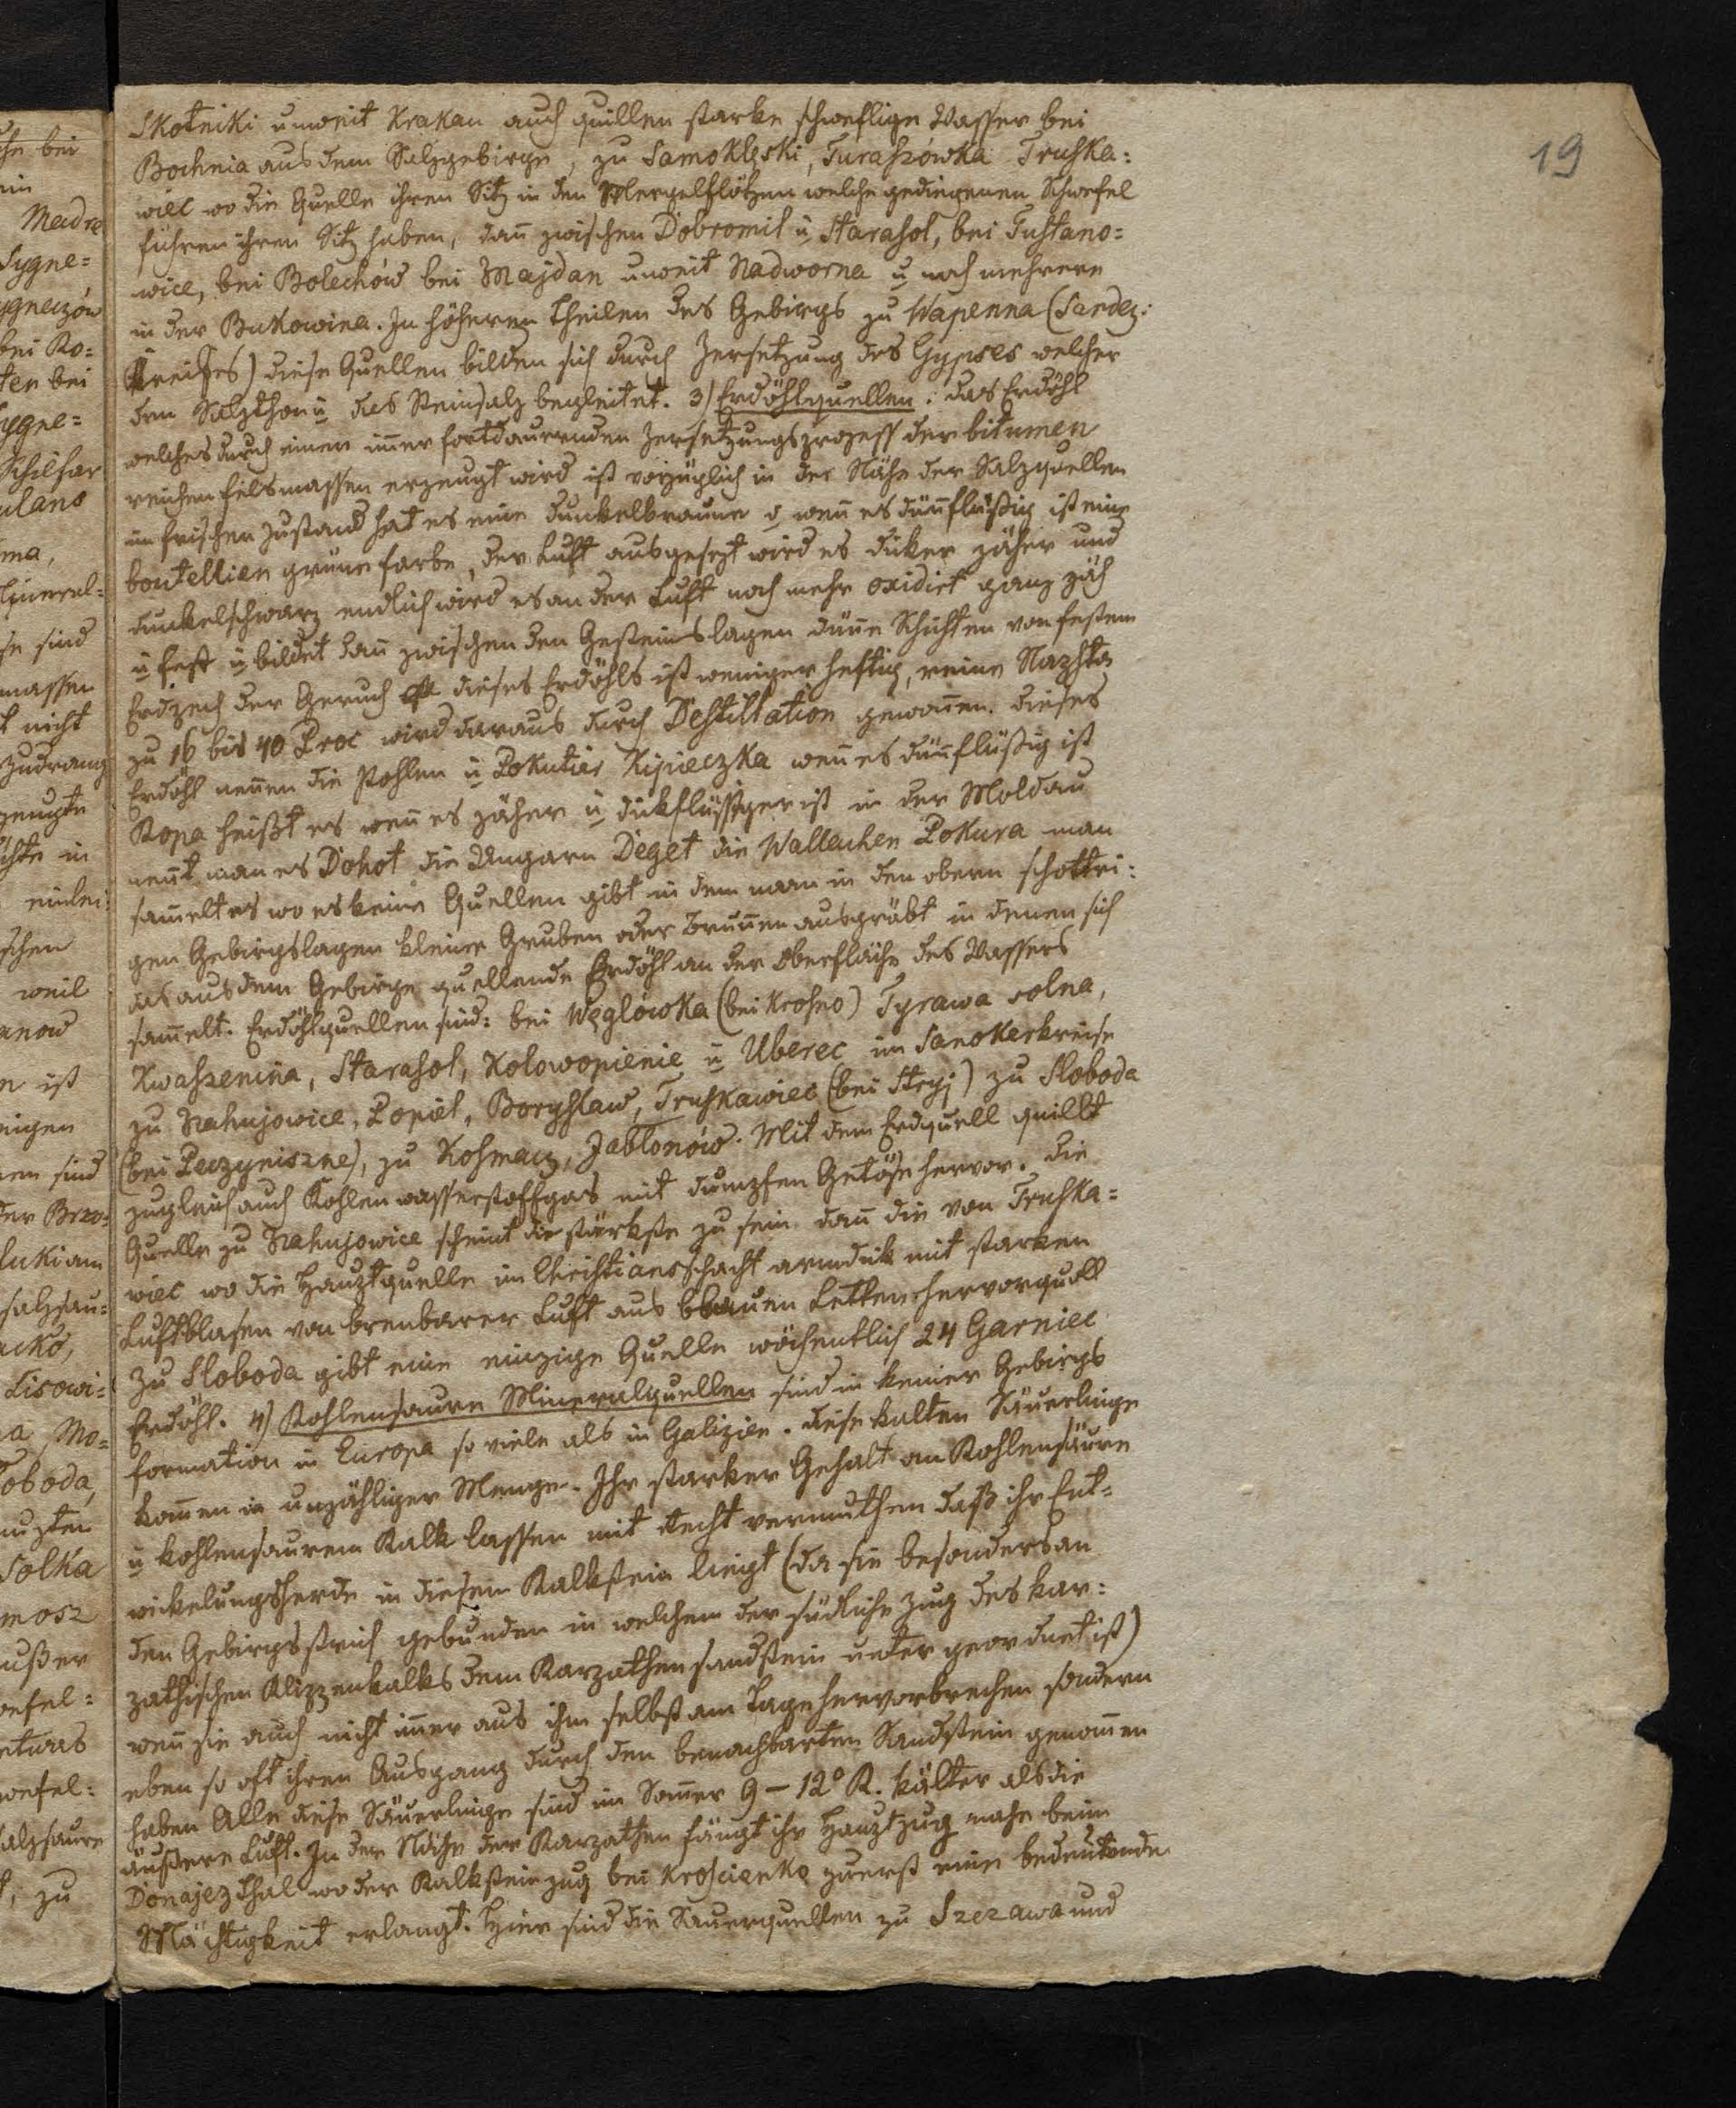 19
Skotniki unweit Krakau auch quillen starke schweflige Wasser bei
Bochnia aus dem Salzgebirge, zu Samoklęski, Turaszówka Truska=
wiec wo die Quelle ihren Sitz in den Mergelflötzen welche gediegenen Schwefel
führen ihren Sitz haben, dan̅ zwischen Dobromil u Starasol, bei Tustano=
wice, bei Bolechów bei Majdan unweit Nadworna u noch mehrere
in der Bukowina. In höheren Theilen des Gebirgs zu Wapenna (Sandez:
Kreises) diese Quellen bilden sich durch Zersetzung des Gypses welcher
den Salzthon u das Steinsalz begleitet. 3) Erdöhlquellen: das Erdöhl
welches durch einen im̅er fortdaurenden Zersetzungsprozess der bitumen
reichen Felsmassen erzeugt wird ist vorzüglich in der Nähe der Salzquellen
im frischen Zustand hat es eine dunkelbraune o wen̅ es dün̅flüßig ist eine
bouteillien grüne Farbe, der Luft ausgesezt wird es dicker zäher und
dunkelschwarz endlich wird es an der Luft noch mehr oxidirt ganz zäh
u fest u bildet dan̅ zwischen den Gesteinslagen dün̅e Schichten von festem
Erdpech der Geruch dieses Erdöhls ist weniger heftig, reine Naphta
zu 16 bis 40 Proc wird daraus durch Destillation gewon̅en. dieses
Erdöhl nen̅en die Pohlen u Pokutier Kipieczka wen̅ es dün̅flüßig ist
Ropa heißt es wen̅ es zäher u dickflüßiger ist in der Moldau
nen̅t man es Dohot die Ungarn Deget die Wallachen Pokura man
sam̅elt es wo es keine Quellen gibt in dem man in den obern schottri:
gen Gebirgslagen kleine Gruben oder Brun̅en ausgräbt in denen sich
das aus dem Gebirge quellende Erdöhl an der Oberfläche des Wassers
sam̅elt. Erdöhlquellen sind: bei Węglówka (bei Krosno) Tyrawa solna,
Kwaszenina, Starasol, Kolowopienie u Uberec im Sanokerkreise
zu Nahujowice, Popiel, Boryslaw, Truskawiec (bei Stryj) zu Sloboda
(bei Peczyniszne), zu Kosmacz, Jablonów. Mit dem Erdquell quillt
zugleich auch Kohlenwasserstoffgas mit dumpfen Getöse hervor. die
Quelle zu Nahujowice scheint die stärkste zu sein dan̅ die von Truska=
wiec wo die Hauptquelle im Christiansschacht armdick mit starken
Luftblasen von brenbarer Luft aus blauen Letten hervorquoll
Zu Sloboda gibt eine einzige Quelle wöchentlich 24 Garniec
Erdöhl. 4) Kohlensaure Mineralquellen sind in keiner Gebirgs
formation in Europa so viele als in Galizien. diese kalten Säuerlinge
kom̅en in unzähliger Menge. Ihr starker Gehalt an Kohlensäure
u kohlensaurem Kalk lassen mit Recht vermuthen daß ihr Ent=
wickelungsherde in diesem Kalkstein liegt (da sie besonders an
den Gebirgsstrich gebunden in welchem der südliche Zug des kar:
pathischen Klippenkalks dem Karpathensandstein untergeordnet ist)
wen̅ sie auch nicht im̅er aus ihm selbst am Tage hervorbrechen sondern
eben so oft ihren Ausgang durch den benachbarten Sandstein genom̅en
haben Alle diese Säuerlinge sind im Som̅er 9 – 12° R. kälter als die
äußere Luft. In der Nähe der Karpathen fängt ihr Hauptzug nahe beim
Donajez thal wo der Kalksteinzug bei Kroscienko zuerst eine bedeutende
Mächtigkeit erlangt. Hier sind die Sauerquellen zu Szczawa und